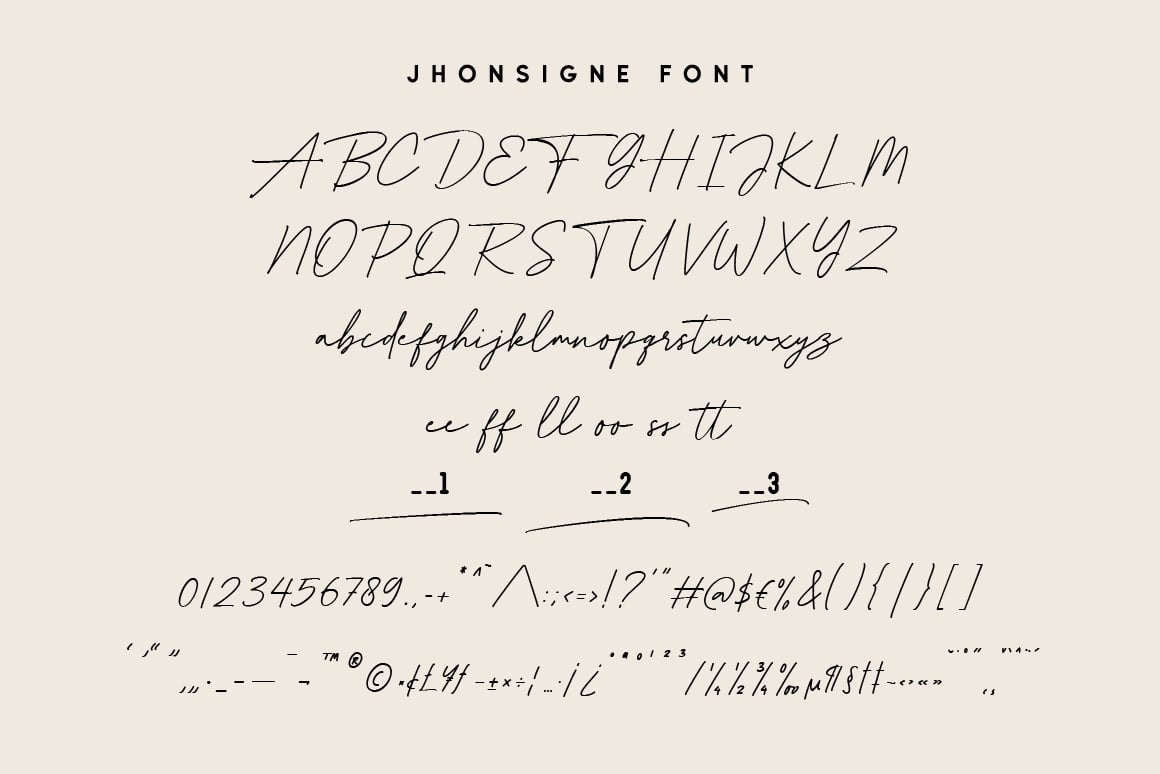 JHONSIGNE FONT
ABCDEFGHIJKLM
NOPQRSTUVWXYZ
abcdefghijklmnopqrstuvwxyz
ee ff ll oo ss tt
__1 __2 __3
0123456789.,-+*^~/\:;<=>!?'"#@$€%&(){/|}[]
‘ ,“ „ ‚„.·_–—¯¬™®©¤¢£¥ƒ−±×÷¦…·¡¿ºª0123/¼½¾‰µ¶§†‡~‹›«»